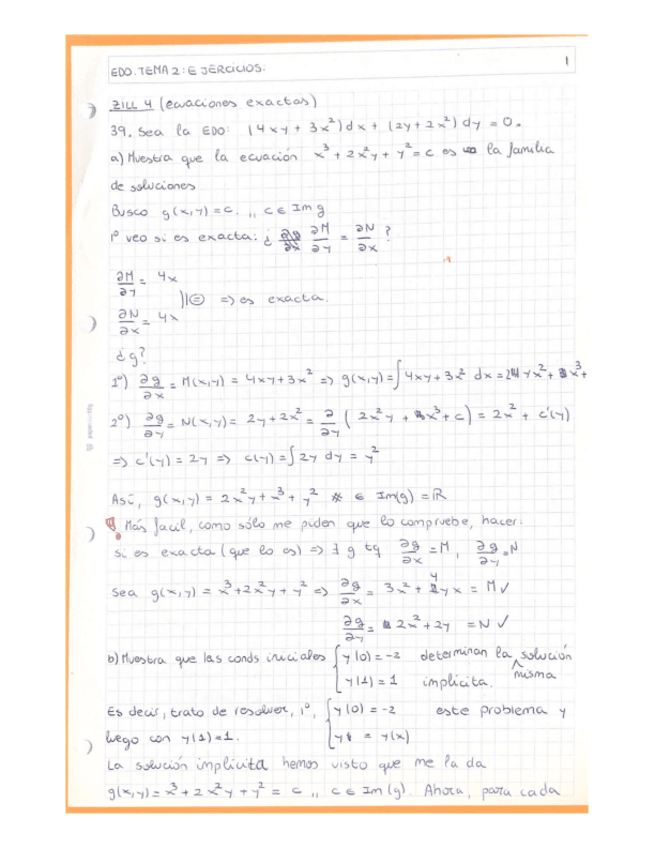 EDO. TEMA 2: EJERCICIOS. 1
ZILL 4 (ecuaciones exactas)
39. Sea la EDO: (4xy + 3x²)dx + (2y + 2x²)dy = 0.
a) Muestra que la ecuación x³ + 2x²y + y² = c es la familia
de soluciones
Busco g(x,y) = c. ,, c ∈ Im g
1º veo si es exacta: ¿ ∂M/∂y = ∂N/∂x ?
∂M/∂y = 4x
|| = => es exacta.
∂N/∂x = 4x
¿g?
1º) ∂g/∂x = M(x,y) = 4xy + 3x² => g(x,y) = ∫4xy + 3x² dx = 2yx² + x³ +
2º) ∂g/∂y = N(x,y) = 2y + 2x² = ∂/∂y (2x²y + x³ + c) = 2x² + c'(y)
=> c'(y) = 2y => c(y) = ∫2y dy = y²
Así, g(x,y) = 2x²y + x³ + y² ∈ Im(g) = ℝ
Más facil, como sólo me piden que lo compruebe, hacer:
si es exacta (que lo es) => ∃ g tq ∂g/∂x = M, ∂g/∂y = N
Sea g(x,y) = x³ + 2x²y + y² => ∂g/∂x = 3x² + 4yx = M ✓
∂g/∂y = 2x² + 2y = N ✓
b) Muestra que las conds iniciales { y(0) = -2 determinan la misma solución
y(1) = 1 implícita.
Es decir, trato de resolver, 1º, { y(0) = -2 este problema y
luego con y(1) = 1. y = y(x)
La solución implícita hemos visto que me la da
g(x,y) = x³ + 2x²y + y² = c ,, c ∈ Im(g). Ahora, para cada